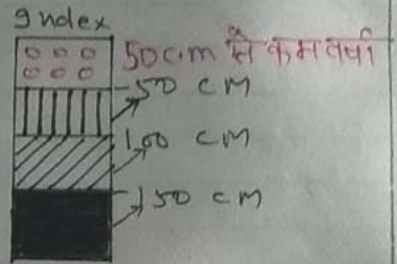 Index
50 c.m से कम वर्षा
50 CM
100 CM
150 CM